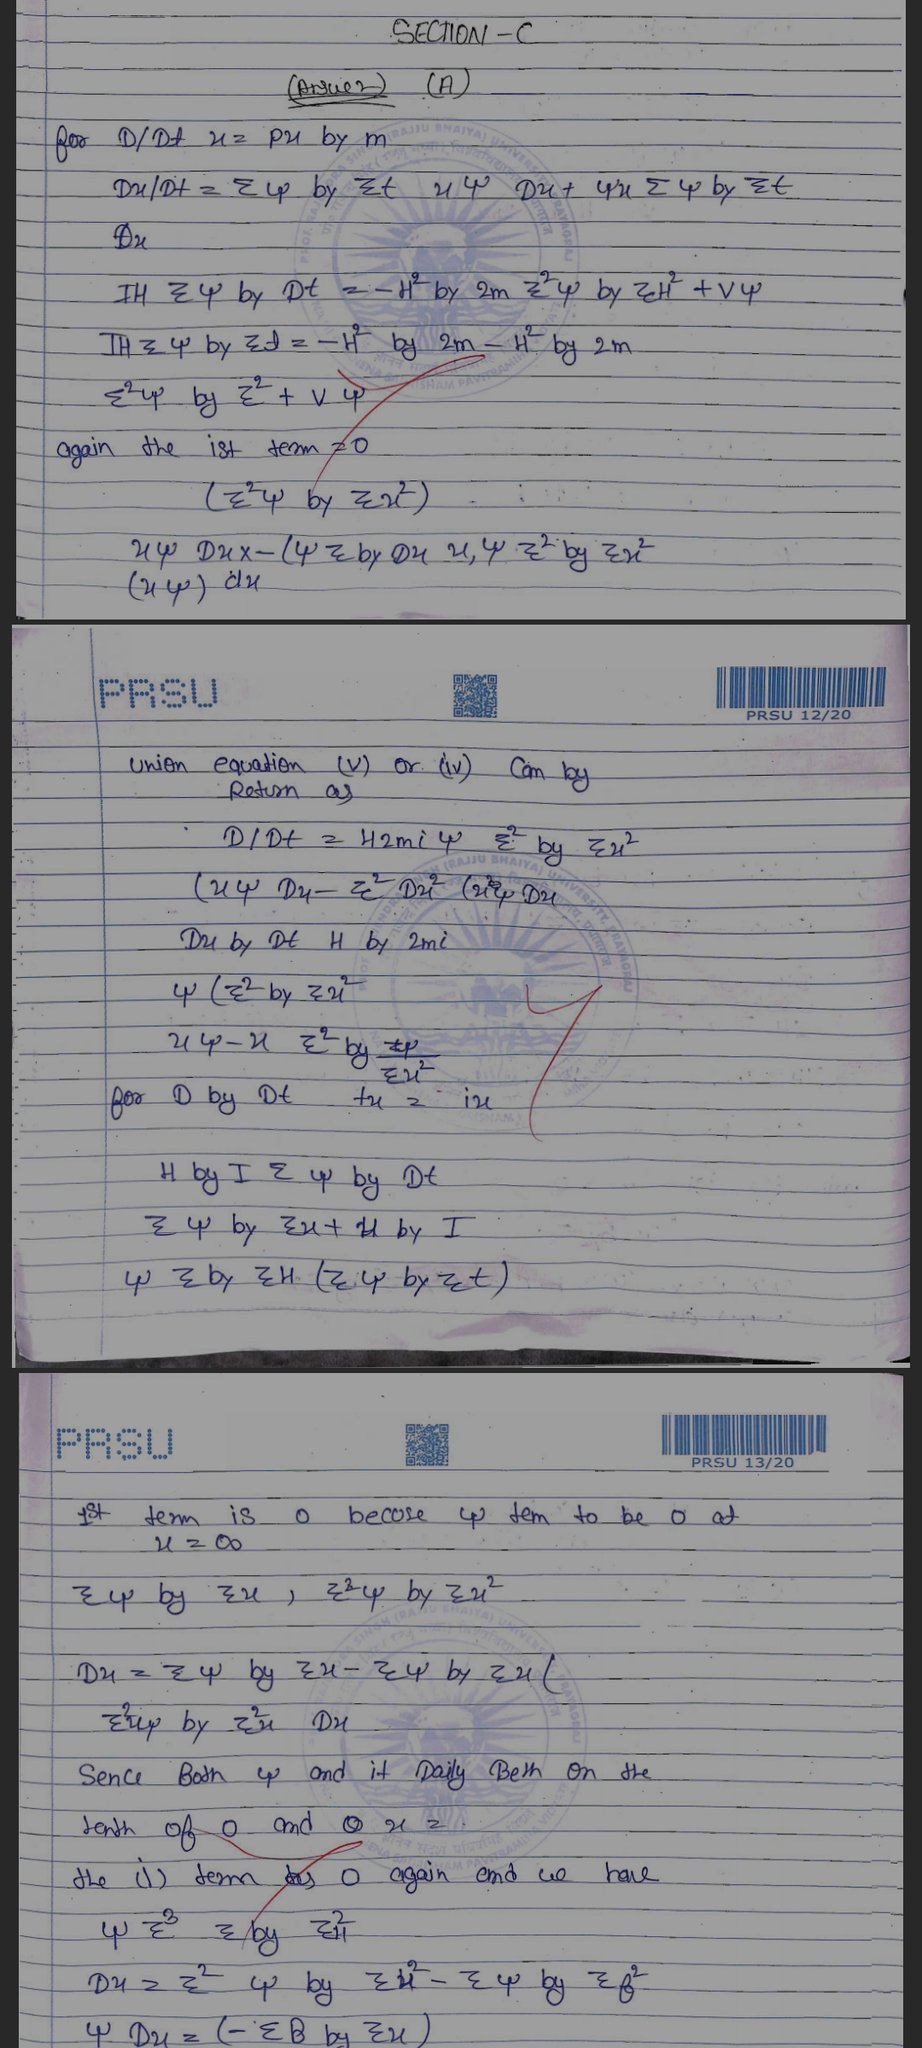 SECTION - C
(Answer) (A)
for D/Dt x = px by m
Dx/Dt = Σ ψ by Σt x ψ Dx + ψx Σ ψ by Σt
Dx
IH Σ ψ by Dt = -H² by 2m Σ²ψ by ΣH² + V ψ
IH Σ ψ by Σd = -H² by 2m - H² by 2m
Σ²ψ by Σ² + V ψ
again the ist term = 0
(Σ²ψ by Σx²)
xψ Dxx - (ψ Σ by Dx x, ψ Σ² by Σx²
(xψ) dx
PRSU
PRSU 12/20
union equation (v) or (iv) Can by
Return as
D/Dt = H2mi ψ Σ² by Σx²
(xψ Dx - Σ² Dx² (x²ψ Dx
Dx by Dt H by 2mi
ψ (Σ² by Σx²
xψ - x Σ² by Σx²
for D by Dt tx = ix
H by I Σ ψ by Dt
Σ ψ by Σx + H by I
ψ Σ by ΣH (Σ ψ by Σt)
PRSU
PRSU 13/20
1st term is 0 becose ψ tem to be 0 at
x = ∞
Σψ by Σx , Σ²ψ by Σx²
Dx = Σψ by Σx - Σψ by Σx (
Σ²xψ by Σ²x Dx
Sence Both ψ and it Daily Beth on the
tenth of 0 and 0 x =
the (i) term has 0 again and we have
ψ Σ³ Σ by Σx²
Dx = Σ² ψ by Σx² - Σψ by Σβ²
ψ Dx = (-ΣB by Σx)